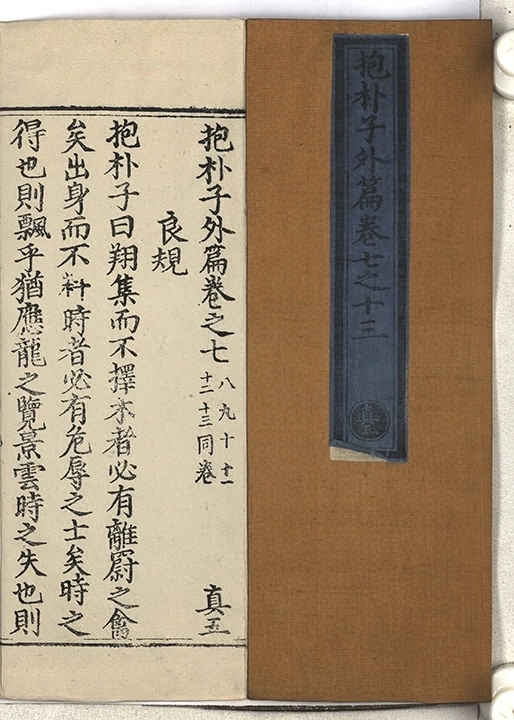 抱朴子外篇卷七之十三
真五
抱朴子外篇卷之七
八九十十一
十二十三同卷
真五
良規
抱朴子曰翔集而不擇木者必有離罻之禽
矣出身而不料時者必有危辱之士矣時之
得也則飄乎猶應龍之覽景雲時之失也則